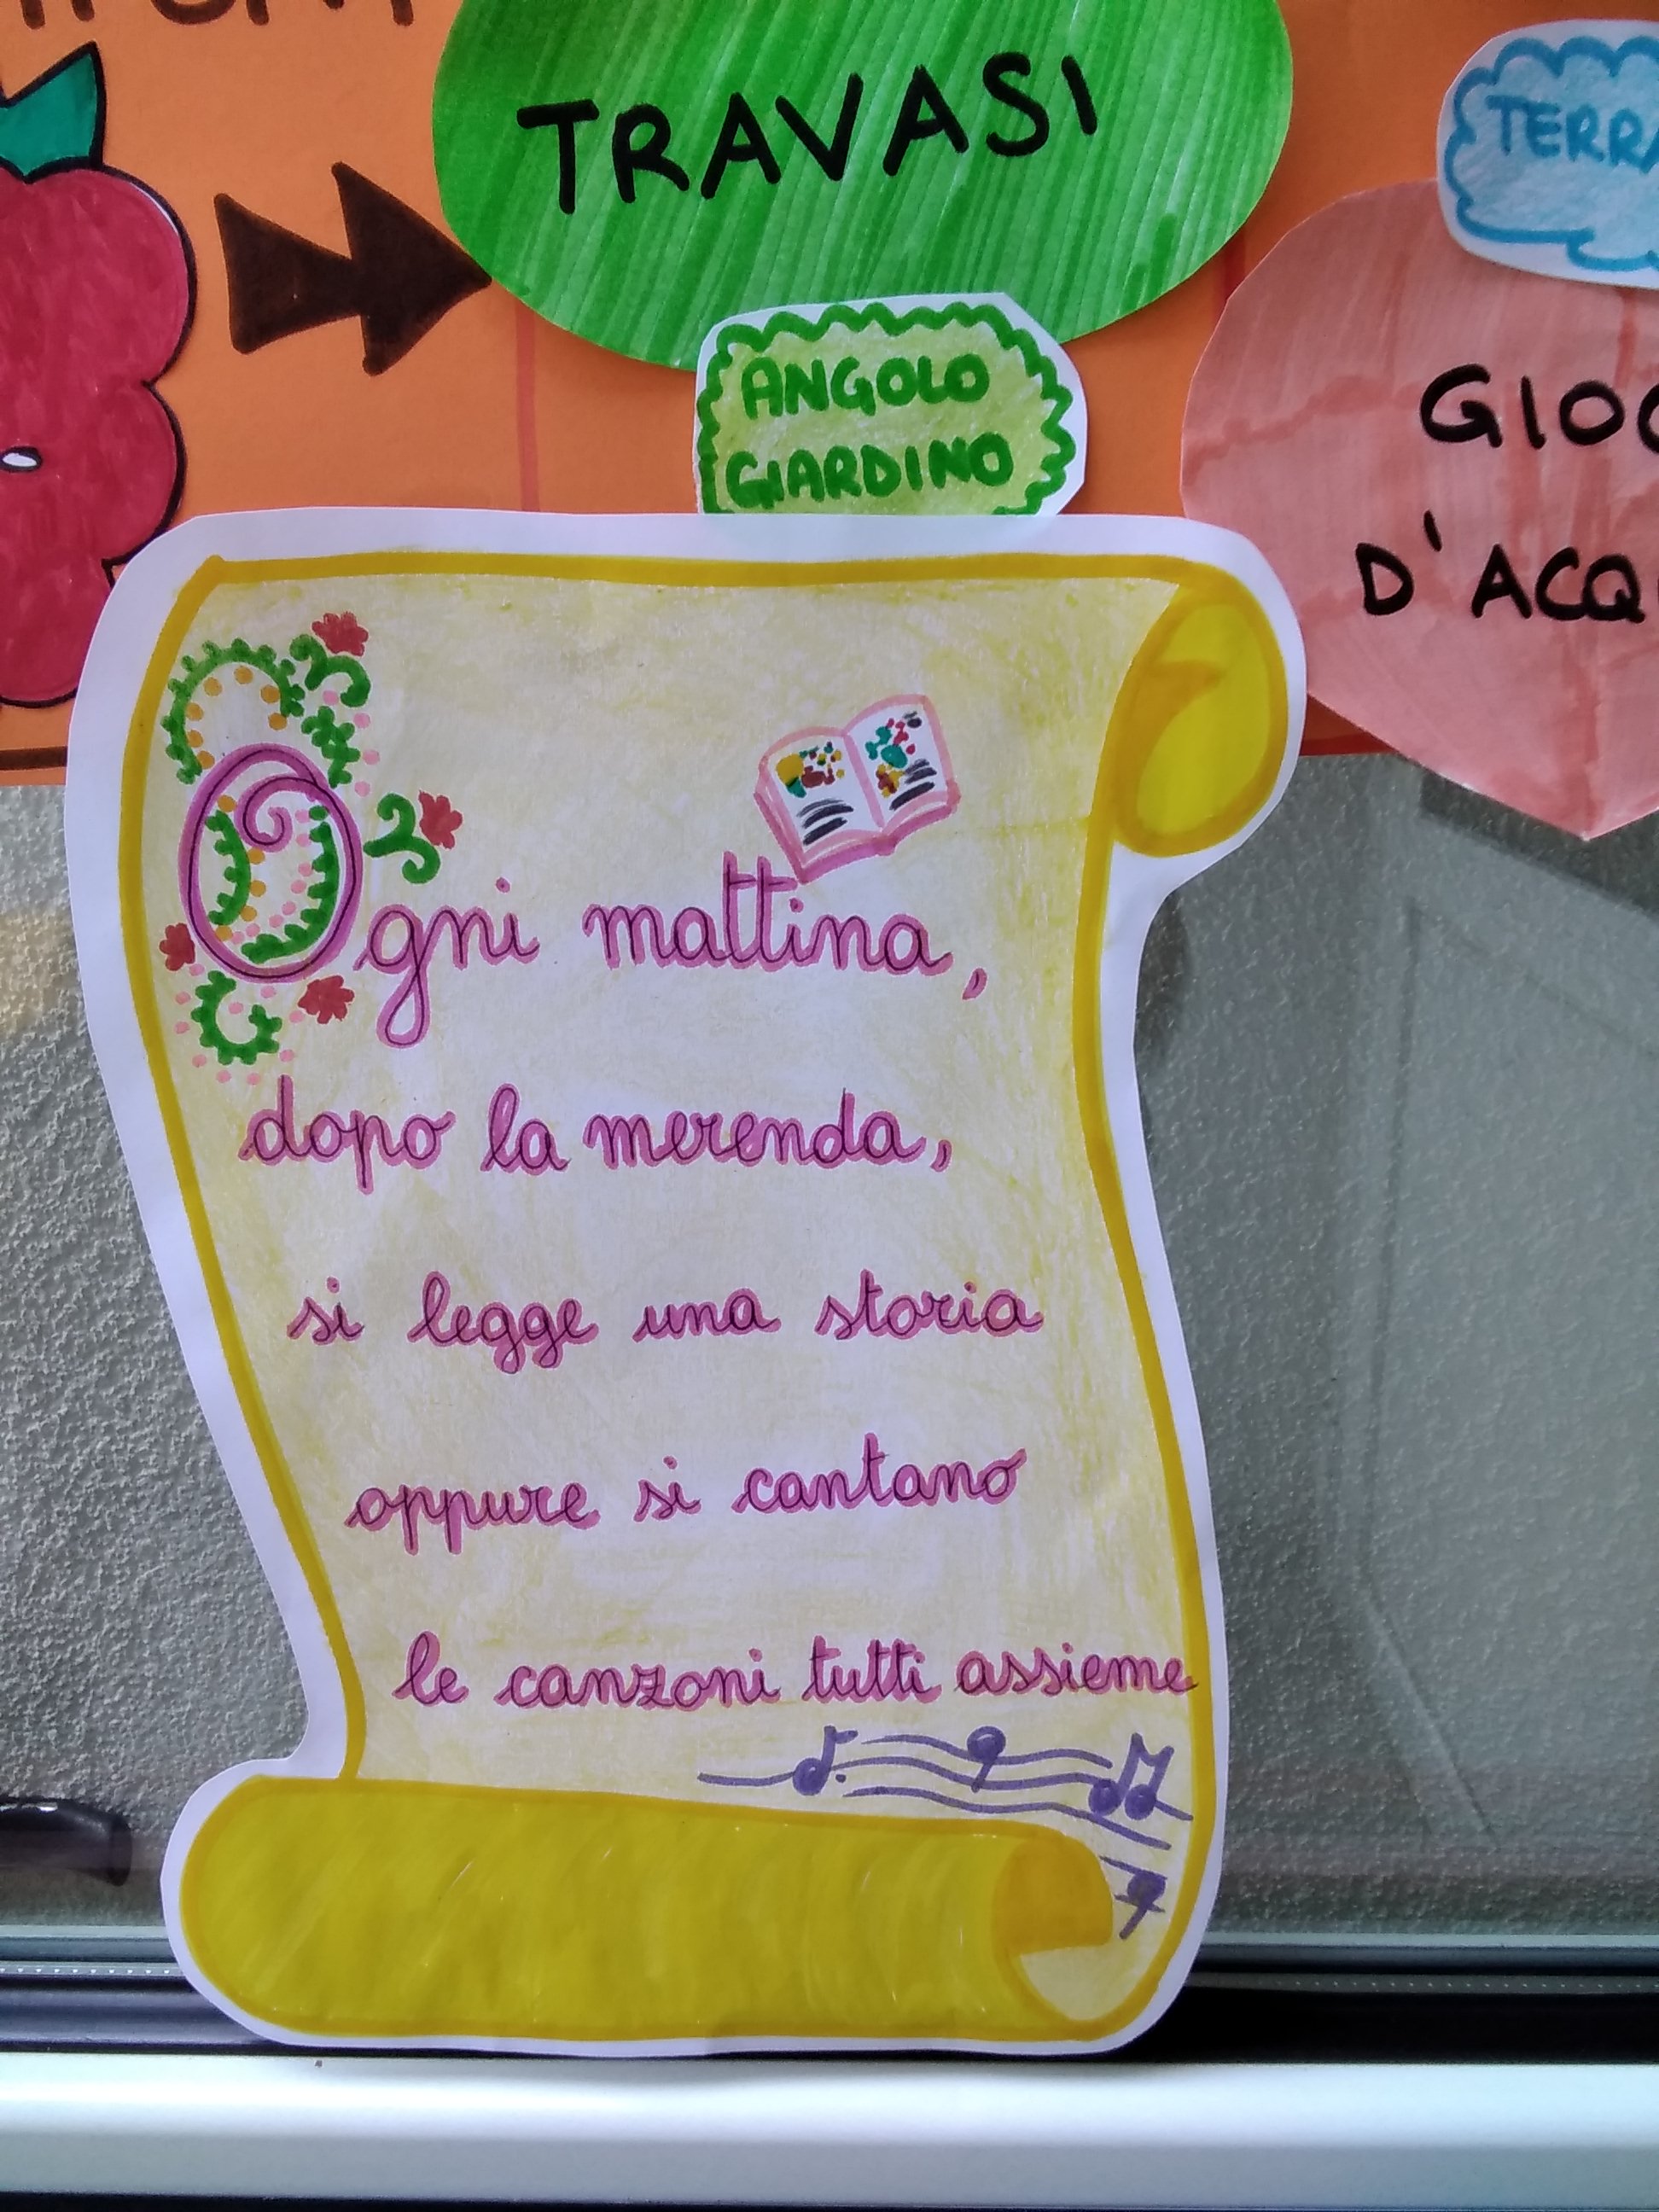 TRAVASI
ANGOLO
GIARDINO
Ogni mattina,
dopo la merenda,
si legge una storia
oppure si cantano
le canzoni tutti assieme